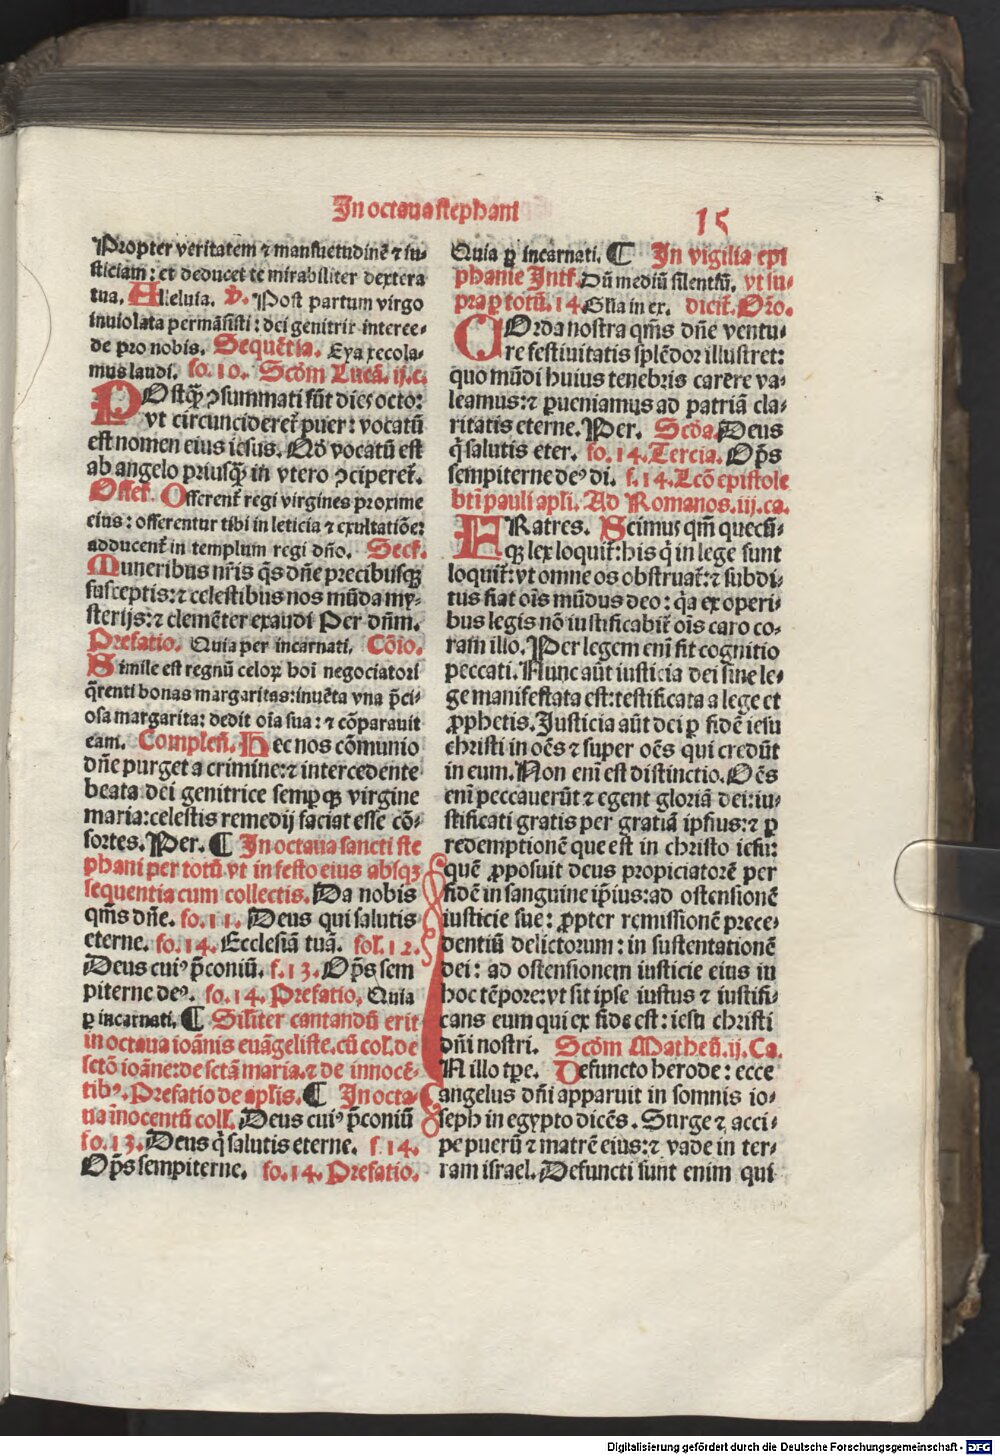 In octaua stephani
15
Propter veritatem ⁊ mansuetudinē ⁊ iu⸗
sticiam: et deducet te mirabiliter dextera
tua. Alleluia. ℣. Post partum virgo
inuiolata permāsisti: dei genitrix interce⸗
de pro nobis. Sequētia. Eya recola⸗
mus laudi. fo. 10. Scd̄m Lucā. ij. c.
POstq̄ꝫ ↄsummati sūt dies octo:
vt circuncideret᷑ puer: vocatū
est nomen eius iesus. Qd̄ vocatū est
ab angelo priusq̄ꝫ in vtero ↄciperet᷑.
Offer̄. Offerent᷑ regi virgines proxime
eius: offerentur tibi in leticia ⁊ exultatiōe:
adducent᷑ in templum regi dn̄o. Secr̄.
Muneribus nr̄is q̄s dn̄e precibusqꝫ
susceptis: ⁊ celestibus nos mūda my⸗
sterijs: ⁊ clemēter exaudi Per dn̄m.
Prefatio. Quia per incarnati. Cōio.
Simile est regnū celoꝝ hoī negociatori
q̄renti bonas margaritas: inuēta vna p̄ci⸗
osa margarita: dedit oīa sua: ⁊ cōparauit
eam. Complen̄. Hec nos cōmunio
dn̄e purget a crimine: ⁊ intercedente
beata dei genitrice semꝑ qꝫ virgine
maria: celestis remedij faciat esse cō⸗
sortes. Per. ¶ In octaua sancti ste
phani per totū. vt in festo eius absqꝫ
sequentia cum collectis. Da nobis
qm̄s dn̄e. fo. 11. Deus qui salutis
eterne. fo. 14. Ecclesiā tuā. fol. 12.
Deus cuiꝰ p̄coniū. f. 13. Op̄s sem
piterne deꝰ. fo. 14. Prefatio. Quia
ꝑ incarnati. ¶ Sil̄iter cantandū erit
in octaua ioānis euāgeliste. cū col. de
sctō ioāne: de sctā maria. ⁊ de innocē⸗
tibꝰ. Prefatio de apl̄is. ¶ In octa⸗
ua īnocentū coll. Deus cuiꝰ p̄coniū
fo. 13. Deus q̄ salutis eterne. f. 14.
Op̄s sempiterne. fo. 14. Prefatio.
Quia ꝑ incarnati. ¶ In vigilia epi
phanie Intr̄. Dū mediū silentiū. vt su⸗
pra ꝑ totū. 14. Gl̄ia in ex. dicit᷑. Or̄o.
COrda nostra qm̄s dn̄e ventu⸗
re festiuitatis splēdor illustret:
quo mūdi huius tenebris carere va⸗
leamus: ⁊ ꝑueniamus ad patriā cla⸗
ritatis eterne. Per. Scd̄a. Deus
q̄ salutis eter. fo. 14. Tercia. Op̄s
sempiterne deꝰ di. f. 14. Lcō epistole
btī pauli apl̄i. Ad Romanos. iij. ca.
FRatres. Scimus qm̄ quecū⸗
qꝫ lex loquit᷑: his q̄ in lege sunt
loquit᷑: vt omne os obstruat᷑: ⁊ subdi⸗
tus fiat oīs mūdus deo: q̄a ex operi⸗
bus legis nō iustificabit᷑ oīs caro co⸗
ram illo. Per legem enī fit cognitio
peccati. Nunc aūt iusticia dei sine le⸗
ge manifestata est: testificata a lege et
ꝓphetis. Iusticia aūt dei ꝑ fidē iesu
christi in oēs ⁊ super oēs qui credūt
in eum. Non enī est distinctio. Oēs
enī peccauerūt ⁊ egent gloriā dei: iu⸗
stificati gratis per gratiā ipsius: ⁊ ꝑ
redemptionē que est in christo iesu:
quē ꝓposuit deus propiciatorē per
fidē in sanguine ip̄ius: ad ostensionē
iusticie sue: ꝓpter remissionē prece⸗
dentiū delictorum: in sustentationē
dei: ad ostensionem iusticie eius in
hoc tēpore: vt sit ipse iustus ⁊ iustifi⸗
cans eum qui ex fide est: iesu christi
dn̄i nostri. Scd̄m Matheū. ij. Ca.
IN illo tp̄e. Defuncto herode: ecce
angelus dn̄i apparuit in somnis io⸗
seph in egypto dicēs. Surge ⁊ acci⸗
pe puerū ⁊ matrē eius: ⁊ vade in ter⸗
ram israel. Defuncti sunt enim qui
Digitalisierung gefördert durch die Deutsche Forschungsgemeinschaft - DFG